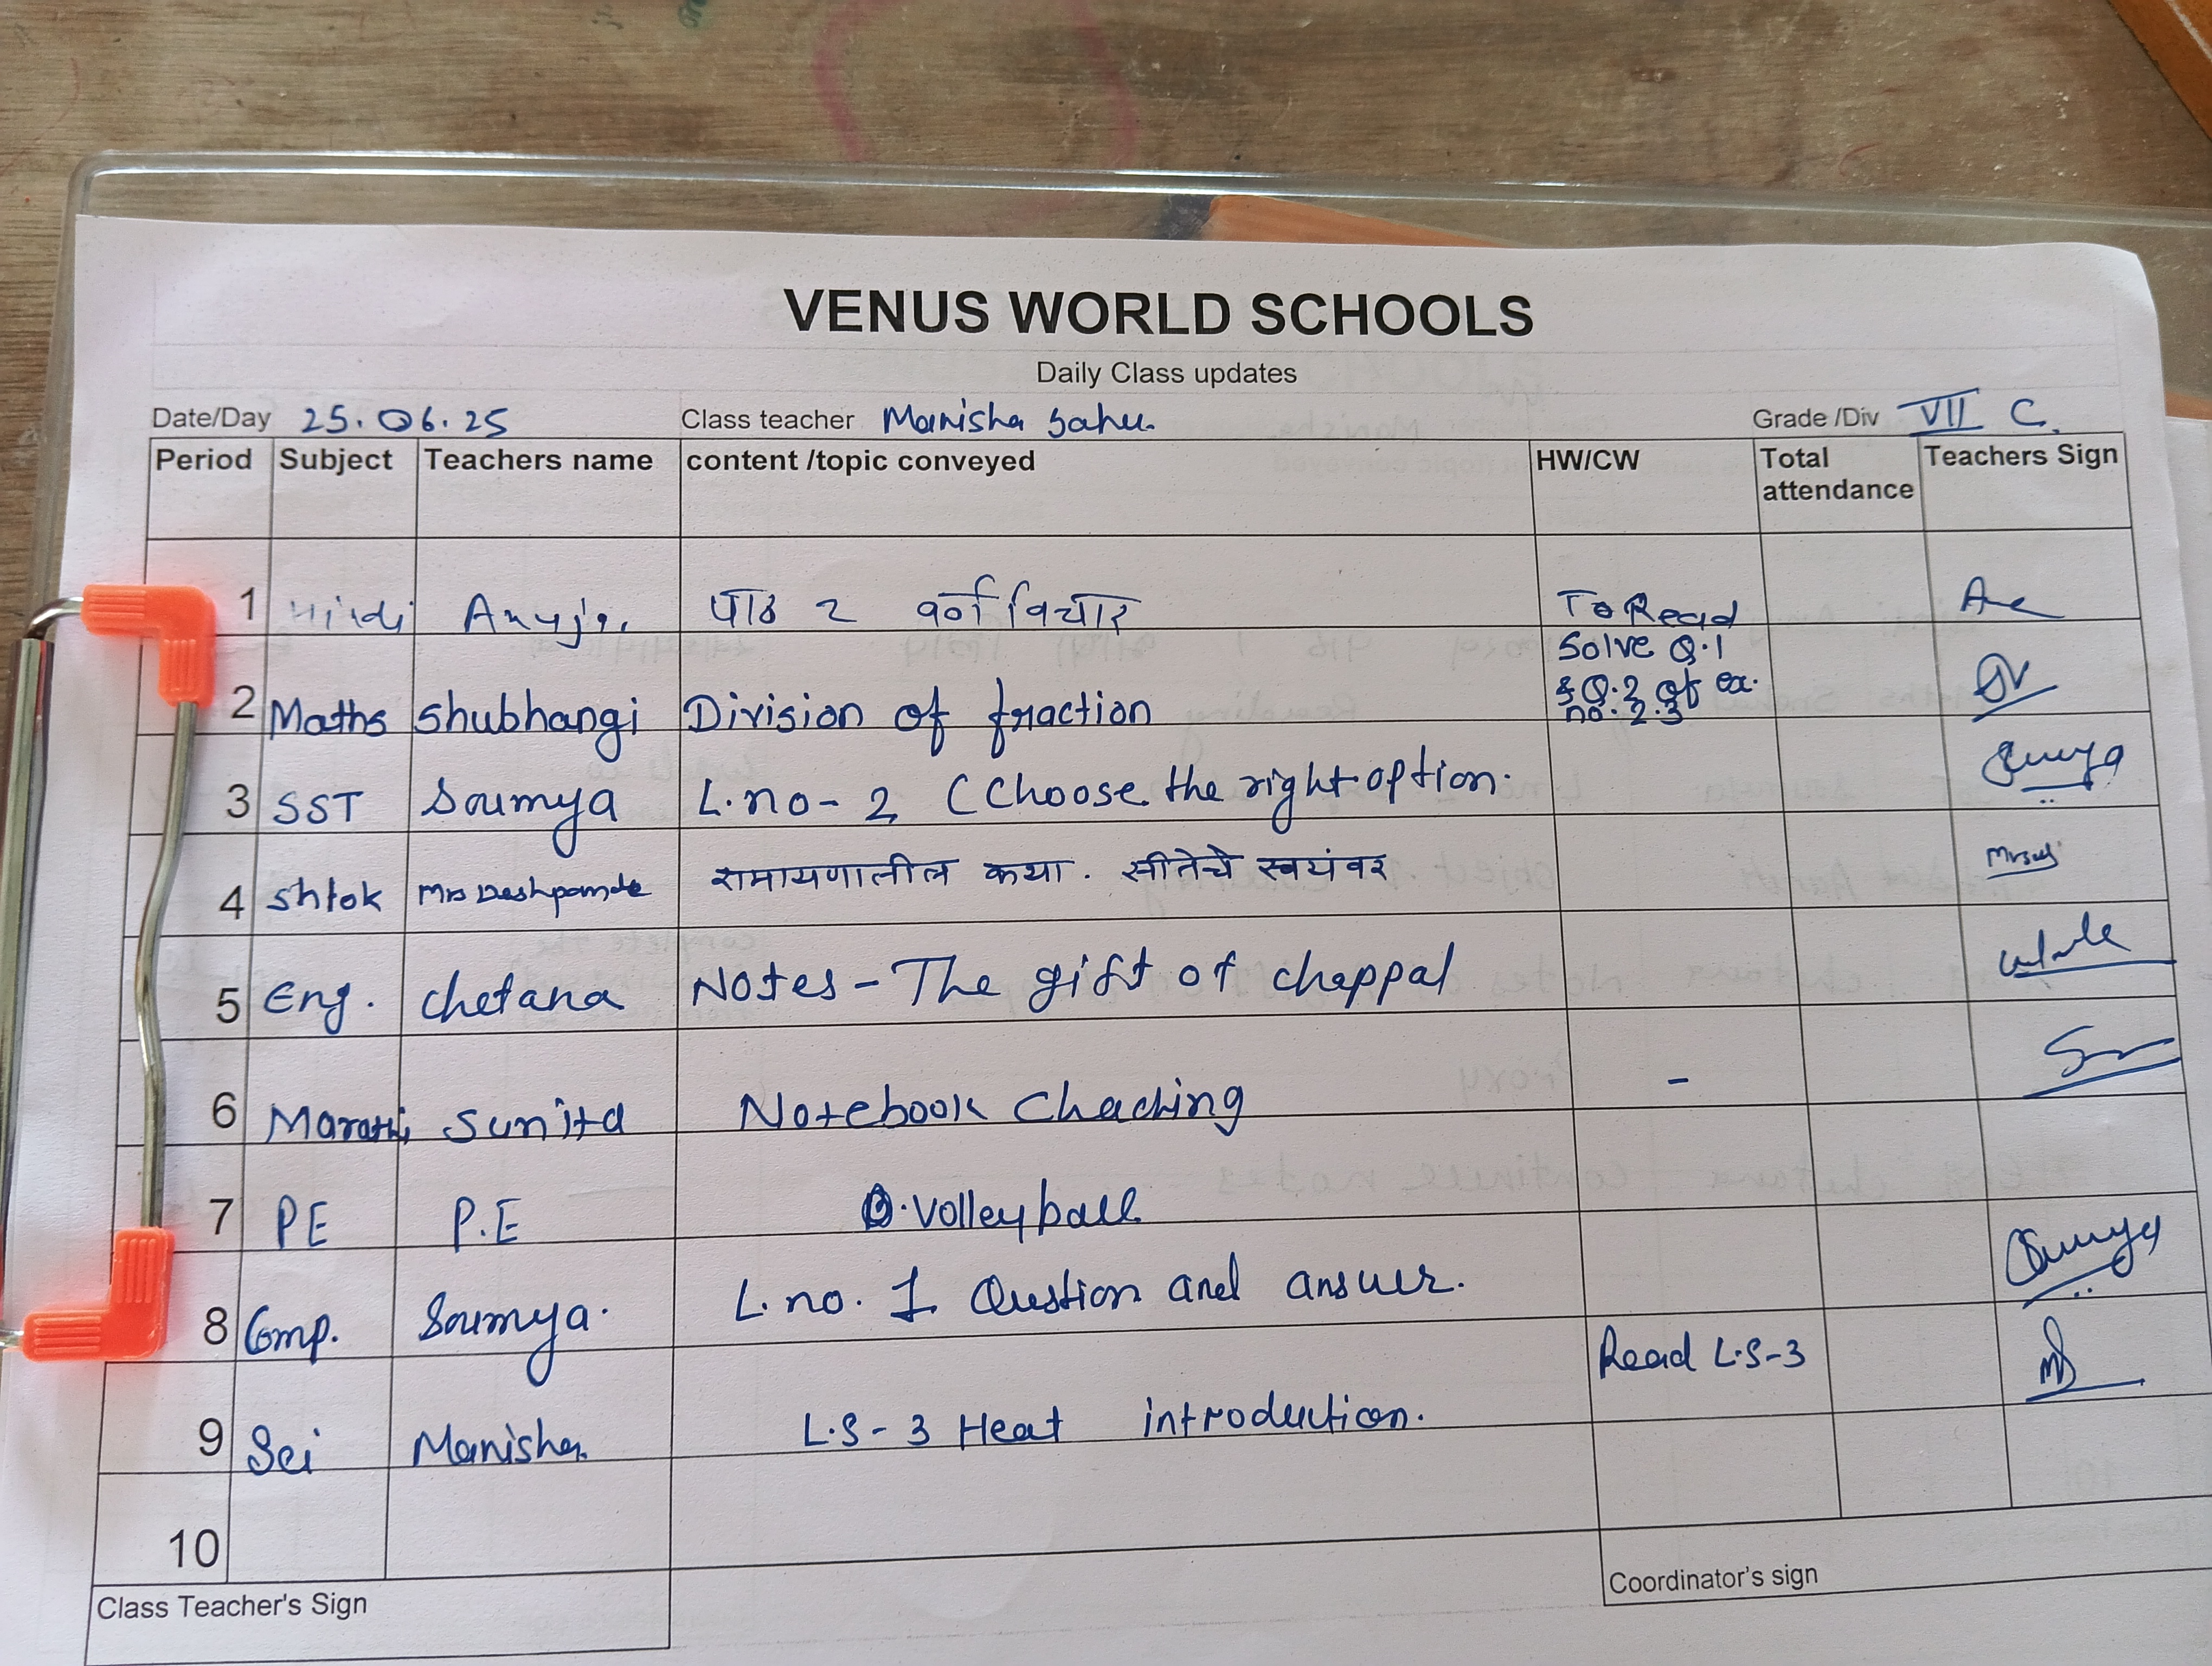 VENUS WORLD SCHOOLS
Daily Class updates
Date/Day 25.06.25 Class teacher Manisha Sahu. Grade /Div VII C.
Period Subject Teachers name content /topic conveyed HW/CW Total attendance Teachers Sign
1 Hindi Anuja पाठ २ वर्ण विचार To Read
2 Maths Shubhangi Division of fraction Solve Q.1 & Q.2 of ex. no. 2.3
3 SST Soumya L.no- 2 (Choose the right option. Soumya
4 Shlok Mrs Deshpande रामायणातील कथा. सीतेचे स्वयंवर
5 Eng. Chetana Notes - The gift of chappal
6 Marathi Sunita Notebook Checking -
7 PE P.E Volleyball
8 Comp. Soumya. L.no. 1 Question and answer. Soumya
9 Sci Manisha L.S- 3 Heat introduction. Read L.S-3
10
Class Teacher's Sign Coordinator's sign